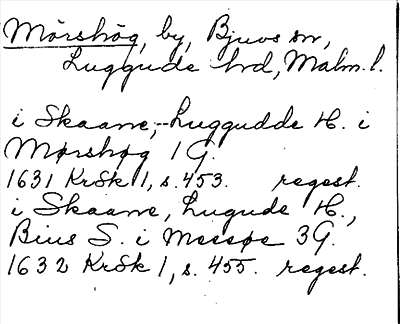 Mörshög, by, Bjuvs sn,
Luggude hrd, Malm. l.
i Skaane, Luggudde H. i
Mørshøg 1 G.
1631 KrSk 1, s. 453. regest.
i Skaane, Lugude H.,
Bius S. i Messøe 3 G.
1632 KrSk 1, s. 455. regest.